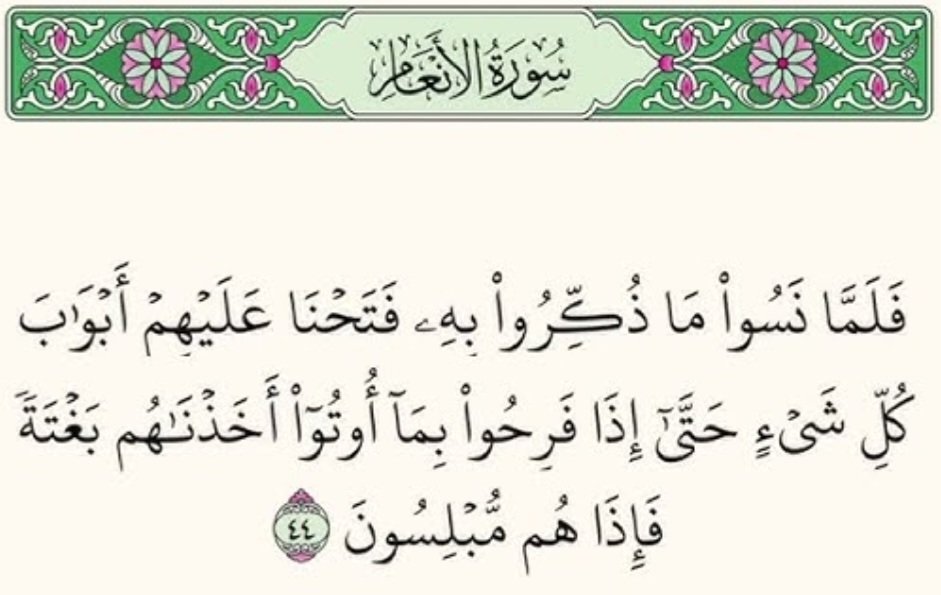 سُورَةُ الأَنْعَامِ
فَلَمَّا نَسُوا۟ مَا ذُكِّرُوا۟ بِهِۦ فَتَحْنَا عَلَيْهِمْ أَبْوَٰبَ
كُلِّ شَىْءٍ حَتَّىٰٓ إِذَا فَرِحُوا۟ بِمَآ أُوتُوٓا۟ أَخَذْنَـٰهُم بَغْتَةً
فَإِذَا هُم مُّبْلِسُونَ ٤٤